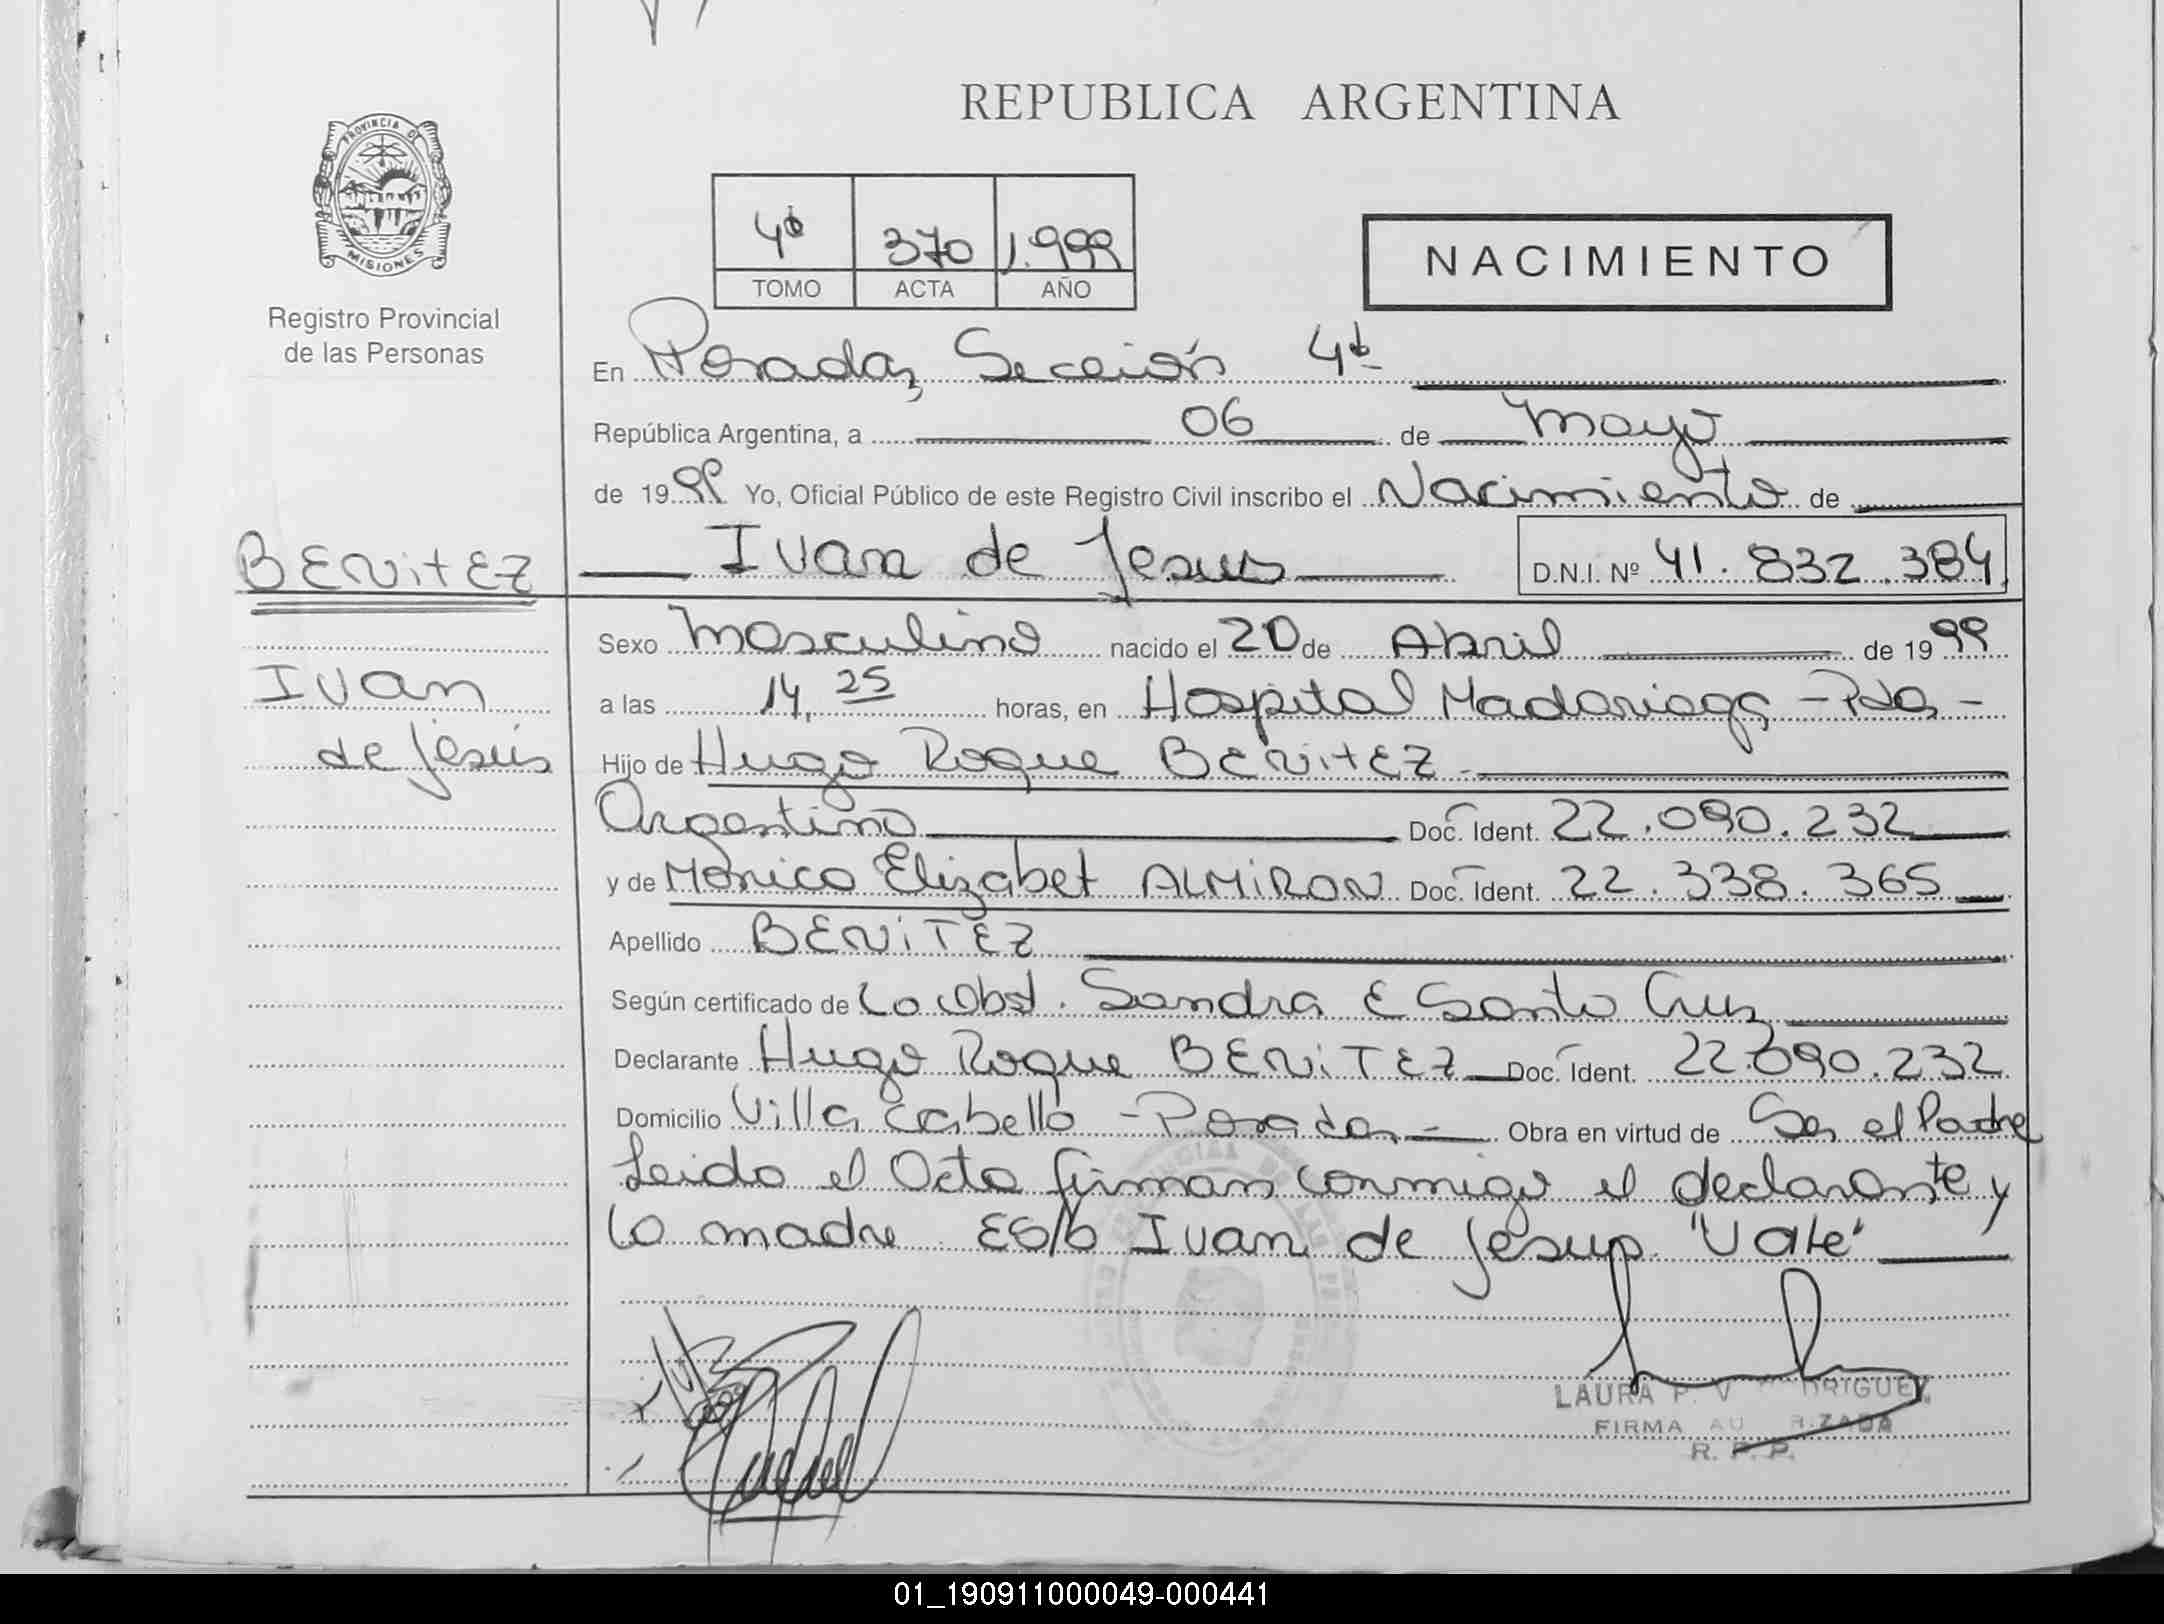 REPUBLICA ARGENTINA
PROVINCIA DE MISIONES
Registro Provincial
de las Personas
4ª 370 1.999
TOMO ACTA AÑO
NACIMIENTO
En Posadas, Sección 4ª
República Argentina, a 06 de Mayo
de 1999 Yo, Oficial Público de este Registro Civil inscribo el Nacimiento de
BENITEZ
Ivan de Jesus D.N.I. Nº 41.832.384
Ivan
de Jesús
Sexo Masculino nacido el 20 de Abril de 1999
a las 14,25 horas, en Hospital Madariaga - Pdas -
Hijo de Hugo Roque BENITEZ
Argentino Doc. Ident. 22.090.232
y de Monica Elizabet ALMIRON Doc. Ident. 22.338.365
Apellido BENITEZ
Según certificado de La Obst. Sandra E Santa Cruz
Declarante Hugo Roque BENITEZ Doc. Ident. 22.090.232
Domicilio Villa Cabello - Posadas - Obra en virtud de Ser el Padre
Leido el Acta firman conmigo el declarante y
la madre. ES/b Ivan de Jesus "Vale"
LAURA P. V
FIRMA
R. P. P.
01_190911000049-000441